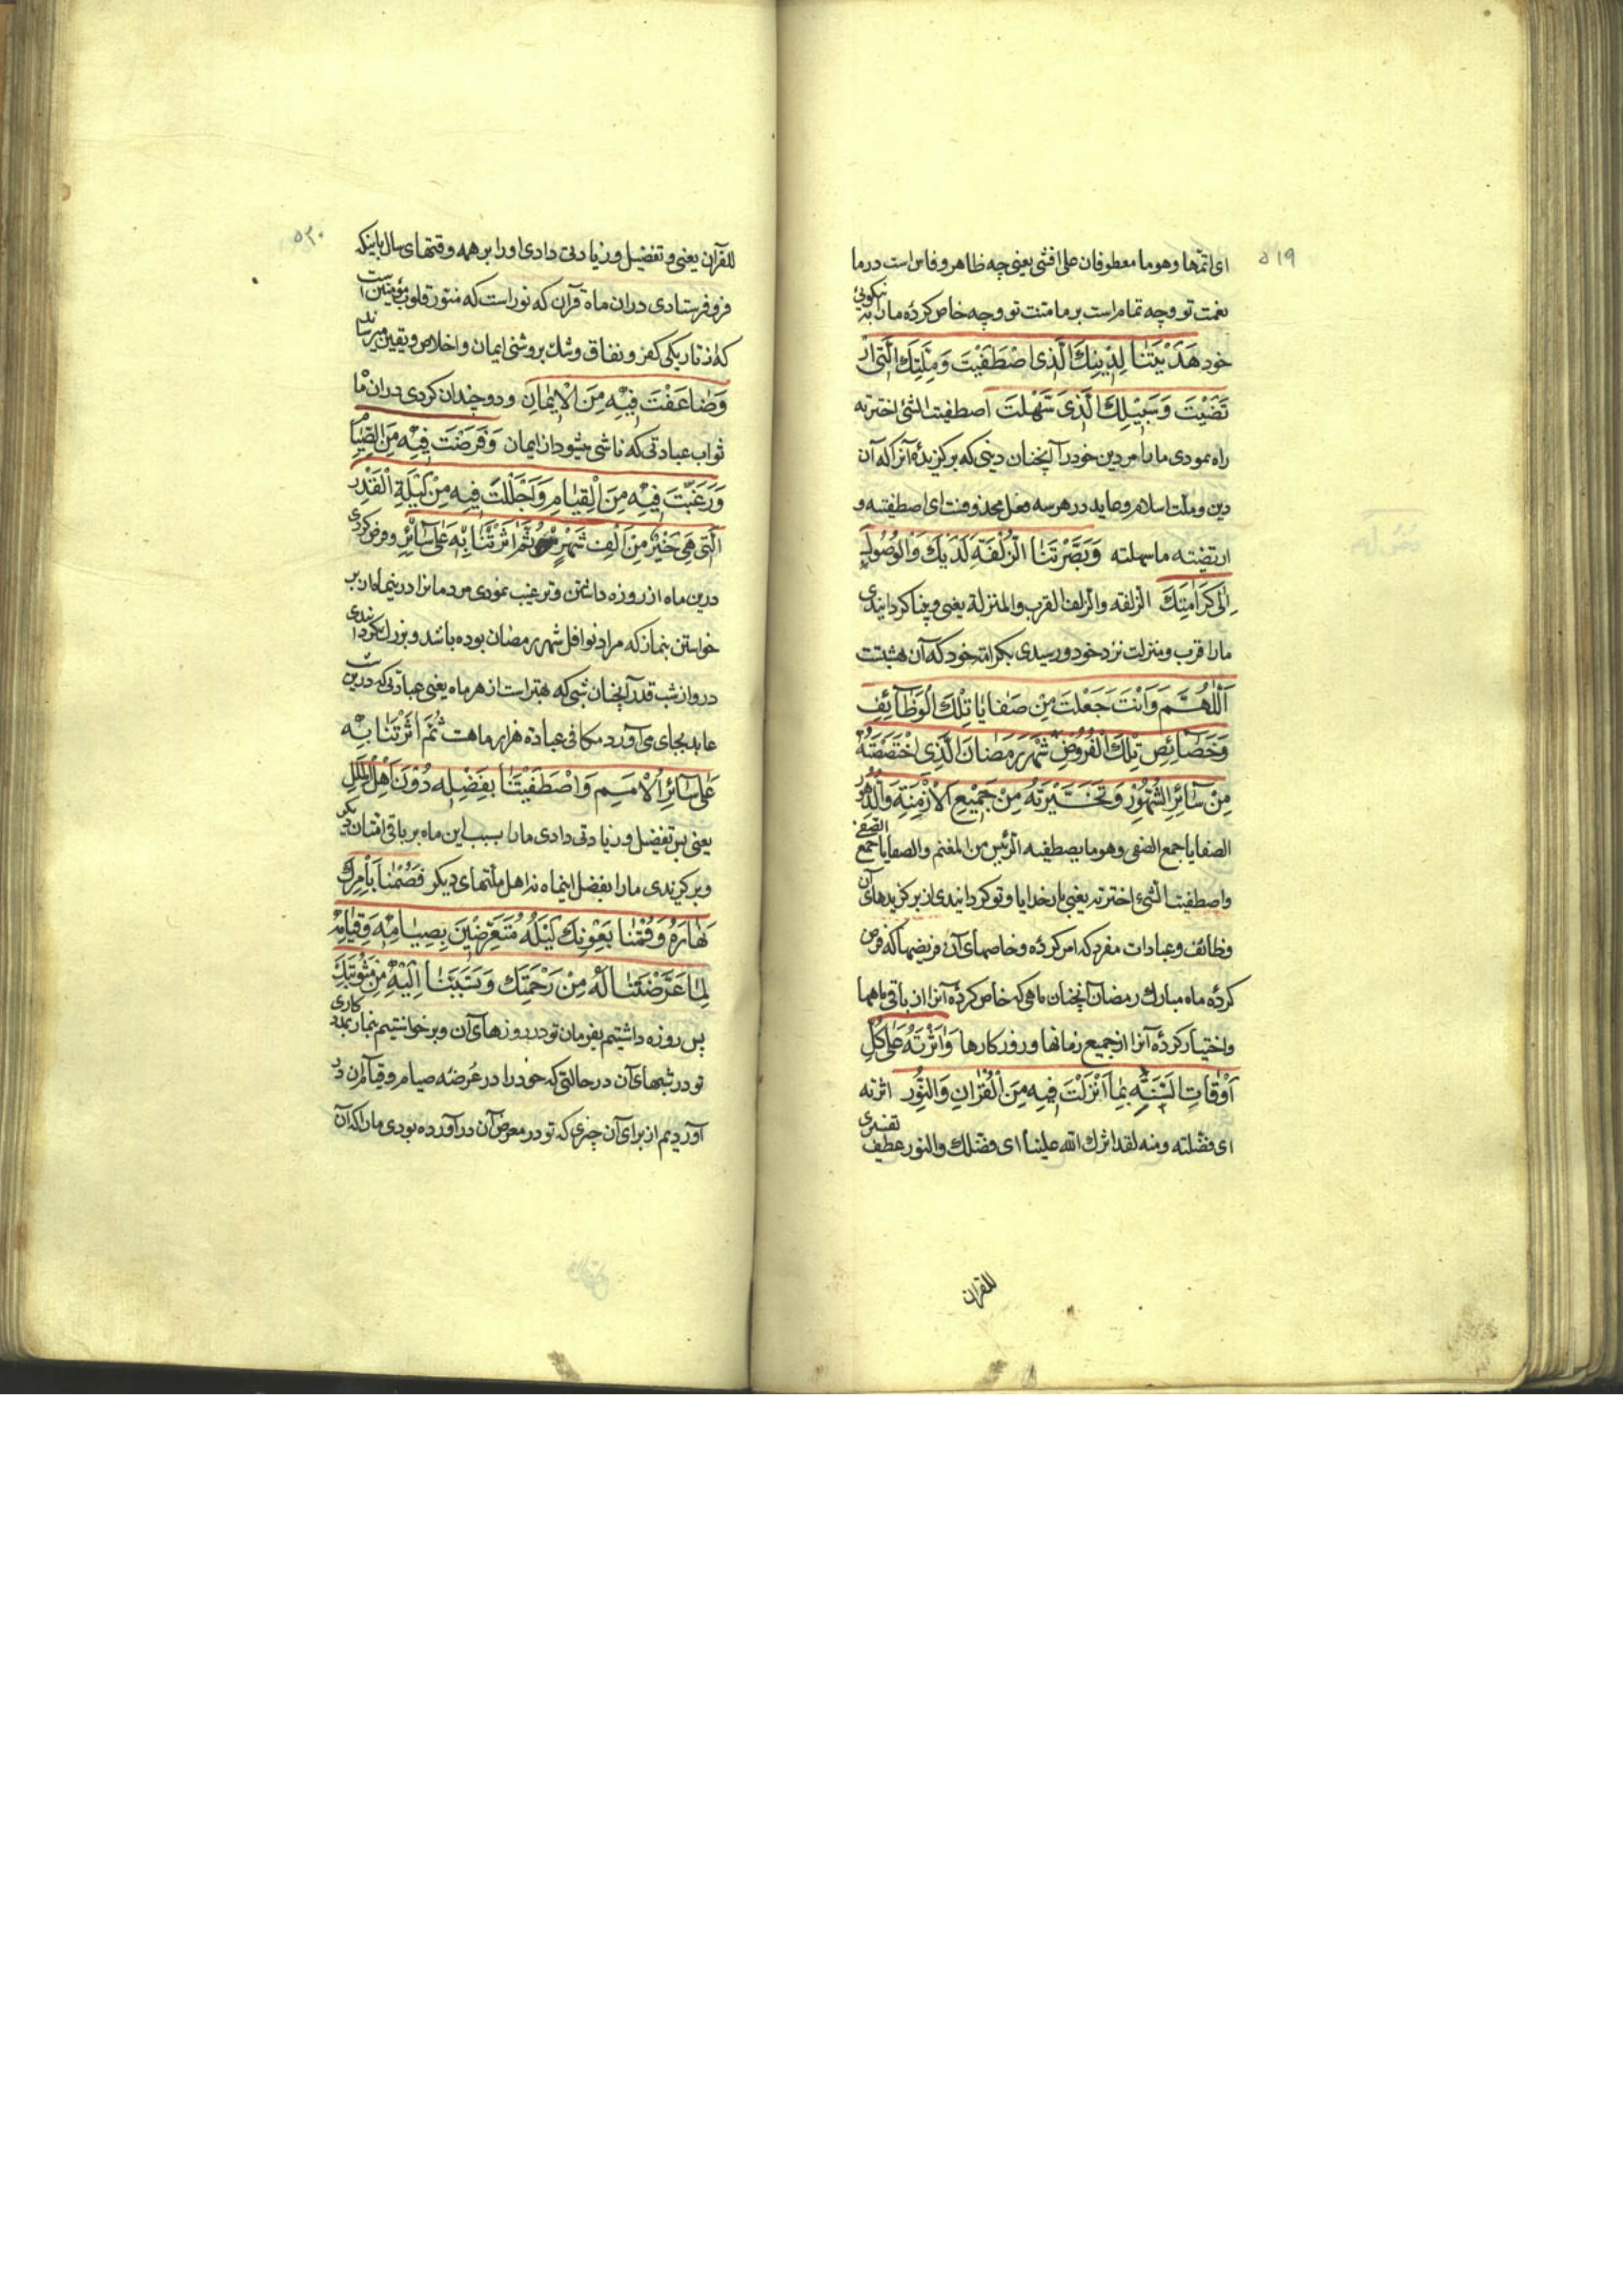 ۵۱۹
ای اتمها وهوما معطوفان علی افشی یعنی چه ظاهر و فاش است در ما
نعمت تو و چه تمام است بر ما منت تو و چه خاص کردهٔ ما را به نیکوئی
خود هَدَيْتَنَا لِدِينِكَ الَّذِی اصْطَفَيْتَ وَمِلَّتِكَ الَّتِی ارْ
تَضَيْتَ وَسَبِيلِكَ الَّذِی سَهَّلْتَ اصطفیت الشئ اخترته
راه نمودی ما را مر دین خود را آنچنان دینی که برگزیدهٔ آنرا که آن
دین و ملّت اسلام و عاید در هر سه فعل محذوفست ای اصطفیته و
ارتضیته ما سهلته وَبَصَّرْتَنَا الزُّلْفَةَ لَدَيْكَ وَالْوُصُولَ
اِلٰی كَرَامَتِكَ الزلفة والزلفا القرب والمنزلة یعنی و بینا گردانیدی
ما را قرب و منزلت نزد خود و رسیدی بکرامت خود که آن بهشتست
اَللّٰهُمَّ وَاَنْتَ جَعَلْتَ مِنْ صَفَايَا تِلْكَ الْوَظَائِفِ
وَخَصَائِصِ تِلْكَ الْفُرُوضِ شَهْرَ رَمَضَانَ الَّذِی اخْتَصَصْتَهُ
مِنْ سَائِرِ الشُّهُورِ وَتَخَيَّرْتَهُ مِنْ جَمِيعِ الْاَزْمِنَةِ وَالدُّهُورِ
الصفایا جمع الصفی وهو ما یصطفیه الرئیس من المغنم والصفایا جمع الصفی
واصطفیت الشئ اخترته یعنی بار خدایا و تو گردانیدی از برگزیدهای آن
وظائف و عبادات مفرد که امر کردهٔ و خاصهای آن فریضها که فرض
کردهٔ ماه مبارک رمضان آنچنان ماهی که خاص کردهٔ آنرا از باقی ماهها
و اختیار کردهٔ آنرا از جمیع زمانها و روزگارها وَاٰثَرْتَهُ عَلٰی كُلِّ
اَوْقَاتِ السَّنَةِ بِمَا اَنْزَلْتَ فِيهِ مِنَ الْقُرْاٰنِ وَالنُّورِ اثرته
ای فضّلته ومنه لقد اثرک الله علینا ای فضلک والنور عطف تفسیری
للقران
۵۲۰
للقرآن یعنی و تفضیل و زیادتی دادی او را بر همه وقتهای سال باینکه
فرو فرستادی در آن ماه قرآن که نور است که منوّر قلوب مؤمنین است
که از تاریکی کفر و نفاق و شک بروشنی ایمان و اخلاص و یقین میرساند
وَضَاعَفْتَ فِيهِ مِنَ الْاِيمَانِ و دو چندان کردی در آن ماه
ثواب عبادتی که ناشی میشود از ایمان وَفَرَضْتَ فِيهِ مِنَ الصِّيَامِ
وَرَغَّبْتَ فِيهِ مِنَ الْقِيَامِ وَاَجْلَلْتَ فِيهِ مِنْ لَيْلَةِ الْقَدْرِ
الَّتِی هِیَ خَيْرٌ مِنْ اَلْفِ شَهْرٍ ثُمَّ اٰثَرْتَنَا بِهِ عَلٰی سَائِرِ و فرض کردی
درین ماه از روزه داشتن و ترغیب نمودی مردمانرا درینماه از بر
خواستن بنماز که مراد نوافل شهر رمضان بوده باشد و بزرگ گردانیدی
در و از شب قدر آنچنان شبی که بهتر است از هر ماه یعنی عبادتی که درین شب
عابد بجای می‌آورد مکافی عبادة هزار ماهست ثُمَّ اٰثَرْتَنَا بِهِ
عَلٰی سَائِرِ الْاُمَمِ وَاصْطَفَيْتَنَا بِفَضْلِهِ دُونَ اَهْلِ الْمِلَلِ
یعنی پس تفضیل و زیادتی دادی ما را بسبب این ماه بر باقی امتان دیگر
و برگزیدی ما را بفضل اینماه نه اهل ملّتهای دیگر فَصُمْنَا بِاَمْرِكَ
نَهَارَهُ وَقُمْنَا بِعَوْنِكَ لَيْلَهُ مُتَعَرِّضِينَ بِصِيَامِهِ وَقِيَامِهِ
لِمَا عَرَّضْتَنَا لَهُ مِنْ رَحْمَتِكَ وَتَسَبَّبْنَا اِلَيْهِ مِنْ مَثُوبَتِكَ
پس روزه داشتیم بفرمان تو در روزهای آن و برخواستیم بنماز بمددکاری
تو در شبهای آن در حالتی که خود را در عرضه صیام و قیام آن در
آوردیم از برای آن چیزی که تو در معرض آن درآورده بودی ما را که آن